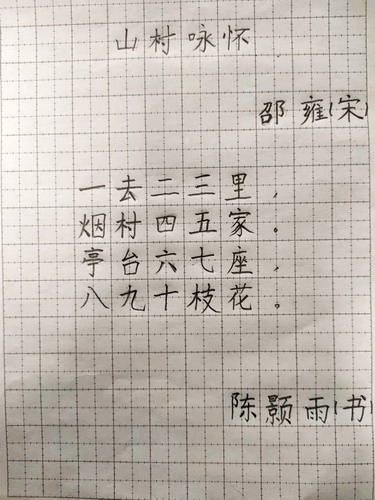 山村咏怀
邵雍(宋)
一去二三里，
烟村四五家。
亭台六七座，
八九十枝花。
陈颢雨(书